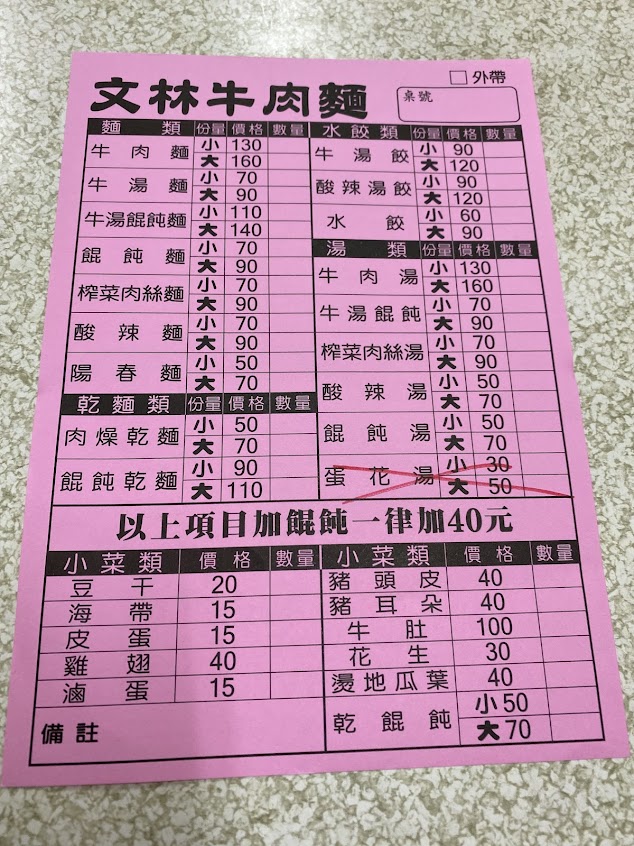 外帶
文林牛肉麵
桌號
麵類 份量 價格 數量
牛肉麵 小 130
大 160
牛湯麵 小 70
大 90
牛湯餛飩麵 小 110
大 140
餛飩麵 小 70
大 90
榨菜肉絲麵 小 70
大 90
酸辣麵 小 70
大 90
陽春麵 小 50
大 70
乾麵類 份量 價格 數量
肉燥乾麵 小 50
大 70
餛飩乾麵 小 90
大 110
水餃類 份量 價格 數量
牛湯餃 小 90
大 120
酸辣湯餃 小 90
大 120
水餃 小 60
大 90
湯類 份量 價格 數量
牛肉湯 小 130
大 160
牛湯餛飩 小 70
大 90
榨菜肉絲湯 小 70
大 90
酸辣湯 小 50
大 70
餛飩湯 小 50
大 70
蛋花湯 小 30
大 50
以上項目加餛飩一律加40元
小菜類 價格 數量
豆干 20
海帶 15
皮蛋 15
雞翅 40
滷蛋 15
備註
小菜類 價格 數量
豬頭皮 40
豬耳朵 40
牛肚 100
花生 30
燙地瓜葉 40
乾餛飩 小 50
大 70